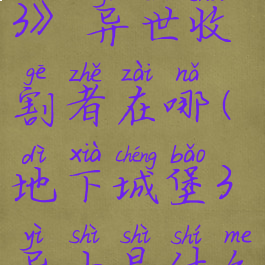 3》异世收
gē zhě zài nǎ
割者在哪(
dì xià chéng bǎo
地下城堡3
yì shì shì shí me